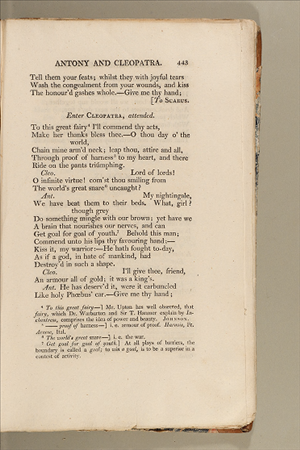 ANTONY AND CLEOPATRA. 443
Tell them your feats; whilst they with joyful tears
Wash the congealment from your wounds, and kiss
The honour'd gashes whole.—Give me thy hand;
[To SCARUS.
Enter CLEOPATRA, attended.
To this great fairy⁴ I'll commend thy acts,
Make her thanks bless thee.—O thou day o' the
world,
Chain mine arm'd neck; leap thou, attire and all,
Through proof of harness⁵ to my heart, and there
Ride on the pants triúmphing.
Cleo. Lord of lords!
O infinite virtue! com'st thou smiling from
The world's great snare⁶ uncaught?
Ant. My nightingale,
We have beat them to their beds. What, girl?
though grey
Do something mingle with our brown; yet have we
A brain that nourishes our nerves, and can
Get goal for goal of youth.⁷ Behold this man;
Commend unto his lips thy favouring hand:—
Kiss it, my warrior:—He hath fought to-day,
As if a god, in hate of mankind, had
Destroy'd in such a shape.
Cleo. I'll give thee, friend,
An armour all of gold; it was a king's.
Ant. He has deserv'd it, were it carbuncled
Like holy Phœbus' car.—Give me thy hand;
⁴ To this great fairy—] Mr. Upton has well observed, that
fairy, which Dr. Warburton and Sir T. Hanmer explain by In-
chantress, comprises the idea of power and beauty. JOHNSON.
⁵ —— proof of harness—] i. e. armour of proof. Harnois, Fr.
Arnese, Ital.
⁶ The world's great snare—] i. e. the war.
⁷ Get goal for goal of youth.] At all plays of barriers, the
boundary is called a goal; to win a goal, is to be a superior in a
contest of activity.